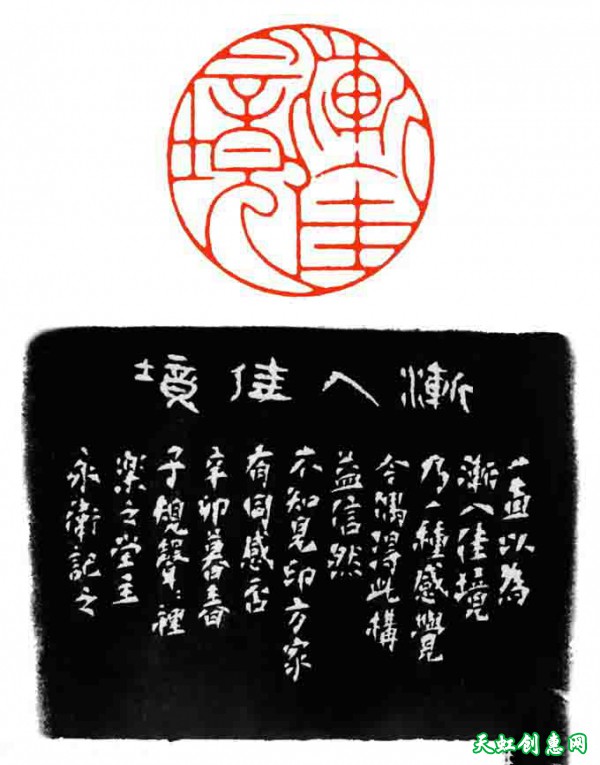 漸入佳境
漸入佳境
一直以為
漸入佳境
乃一種感覺
今偶得此構
益信然
不知見印方家
有同感否
辛卯暮春
子規聲〻裡
樂之堂主
永衛記之
天虹创惠网